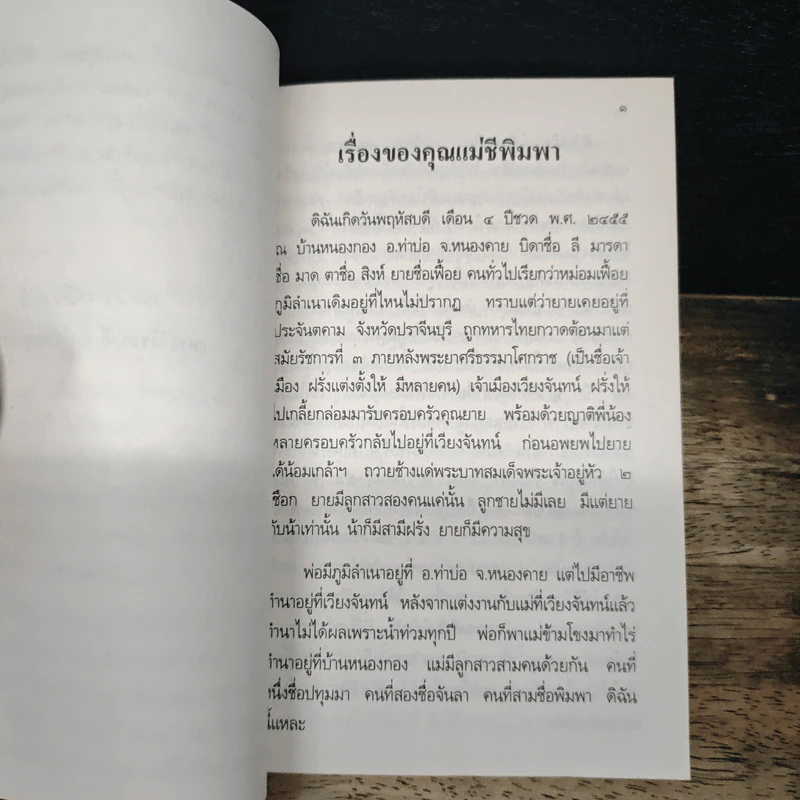 ๑
เรื่องของคุณแม่ชีพิมพา
ดิฉันเกิดวันพฤหัสบดี เดือน ๔ ปีชวด พ.ศ. ๒๔๕๕
ณ บ้านหนองกอง อ.ท่าบ่อ จ.หนองคาย บิดาชื่อ ลี มารดา
ชื่อ มาด ตาชื่อ สิงห์ ยายชื่อเฟื้อย คนทั่วไปเรียกว่าหม่อมเฟื้อย
ภูมิลำเนาเดิมอยู่ที่ไหนไม่ปรากฏ ทราบแต่ว่ายายเคยอยู่ที่
ประจันตคาม จังหวัดปราจีนบุรี ถูกทหารไทยกวาดต้อนมาแต่
สมัยรัชการที่ ๓ ภายหลังพระยาศรีธรรมาโศกราช (เป็นชื่อเจ้า
เมือง ฝรั่งแต่งตั้งให้ มีหลายคน) เจ้าเมืองเวียงจันทน์ ฝรั่งให้
ไปเกลี้ยกล่อมมารับครอบครัวคุณยาย พร้อมด้วยญาติพี่น้อง
หลายครอบครัวกลับไปอยู่ที่เวียงจันทน์ ก่อนอพยพไปยาย
ได้น้อมเกล้าฯ ถวายช้างแด่พระบาทสมเด็จพระเจ้าอยู่หัว ๒
เชือก ยายมีลูกสาวสองคนแค่นั้น ลูกชายไม่มีเลย มีแต่ยาย
กับน้าเท่านั้น น้าก็มีสามีฝรั่ง ยายก็มีความสุข
พ่อมีภูมิลำเนาอยู่ที่ อ.ท่าบ่อ จ.หนองคาย แต่ไปมีอาชีพ
ทำนาอยู่ที่เวียงจันทน์ หลังจากแต่งงานกับแม่ที่เวียงจันทน์แล้ว
ทำนาไม่ได้ผลเพราะน้ำท่วมทุกปี พ่อก็พาแม่ข้ามโขงมาทำไร่
ทำนาอยู่ที่บ้านหนองกอง แม่มีลูกสาวสามคนด้วยกัน คนที่
หนึ่งชื่อปทุมมา คนที่สองชื่อจันลา คนที่สามชื่อพิมพา ดิฉัน
นี้แหละ